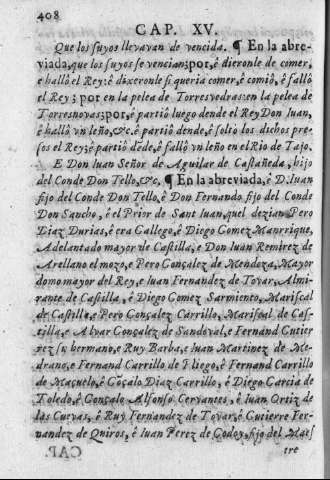 408
CAP. XV.
Que los suyos llevavan de vencida. ¶ En la abre-
viada, que los suyos se vencian; por, è dieronle de comer,
e hallò el Rey: è dixeronle si queria comer, è comiò, è fallò
el Rey; por en la pelea de Torresvedras: en la pelea de
Torresnovas; por, è partiò luego dende el Rey Don Iuan,
è hallò vn leño, &c. è partiò dende, è soltò los dichos pre-
sos el Rey: è partiò dède, è fallò vn leño en el Rio de Tajo.
E Don Iuan Señor de Aguilar de Castañeda, hijo
del Conde Don Tello, &c. ¶ En la abreviada, è D. Iuan
fijo del Conde Don Tello, è Don Fernando fijo del Conde
Don Sancho, è el Prior de Sant Iuan, quel dezian Pero
Diaz Durias, è era Gallego, è Diego Gomez Manrrique,
Adelantado mayor de Castilla, e Don Iuan Remirez de
Arellano el mozo, e Pero Gonçalez de Mendoza, Mayor
domo mayor del Rey, e Iuan Fernandez de Tovar, Almi-
rante de Castilla, è Diego Gomez Sarmiento, Mariscal
de Castillo, e Pero Gonçalez Carrillo, Mariscal de Cas-
tilla, e Alvar Gonçalez de Sandoval, e Fernand Gutier
rez su hermano, e Ruy Barba, e Iuan Martinez de Me-
drano, e Fernand Carrillo de Pliego, è Fernand Carrillo
de Maçuelo, è Gòçalo Diaz Carrillo, è Diego Garcia de
Toledo, è Gonçalo Alfonso Cervantes, è Iuan Ortiz de
las Cuevas, è Ruy Fernandez de Tovar, è Gutierre Fer-
nandez de Quiros, è Iuan Perez de Godoy, fijo del Maes
tre